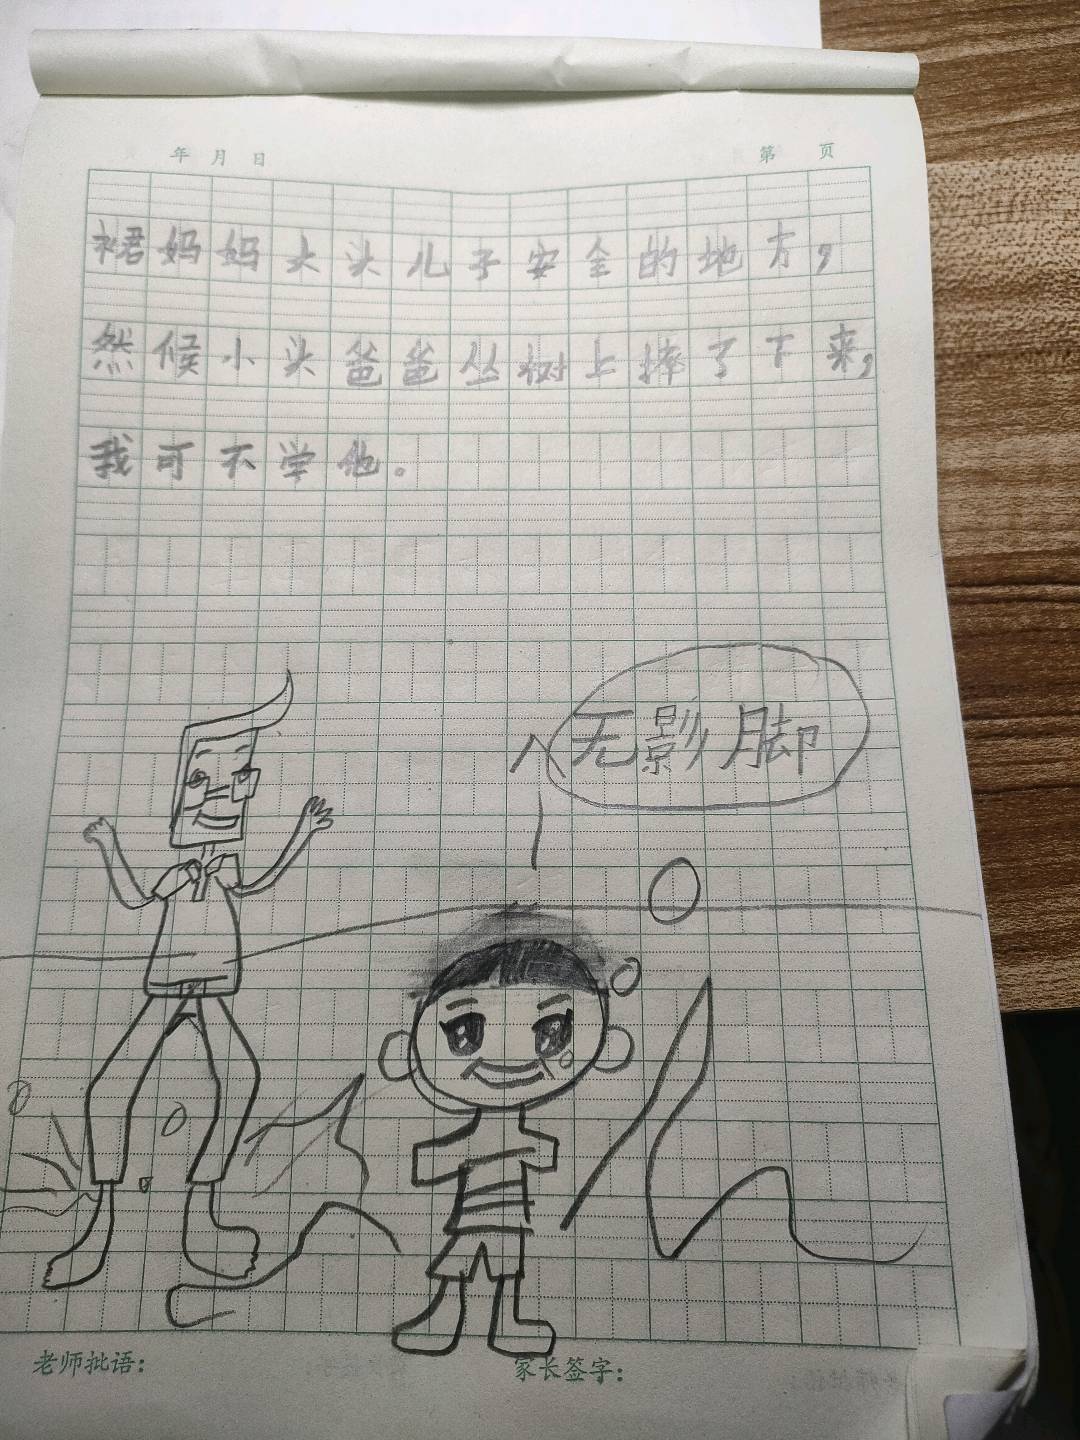 年 月 日
第 页
裙妈妈大头儿子安全的地方，
然候小头爸爸丛树上摔了下来，
我可不学他。
无影脚
老师批语：
家长签字：